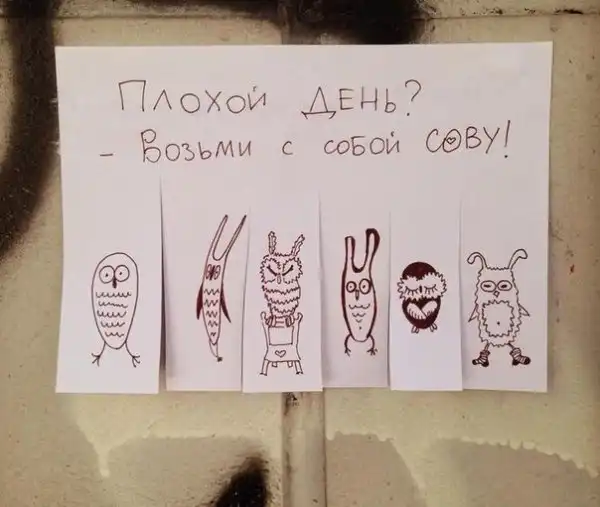 Плохой день?
- Возьми с собой СОВУ!